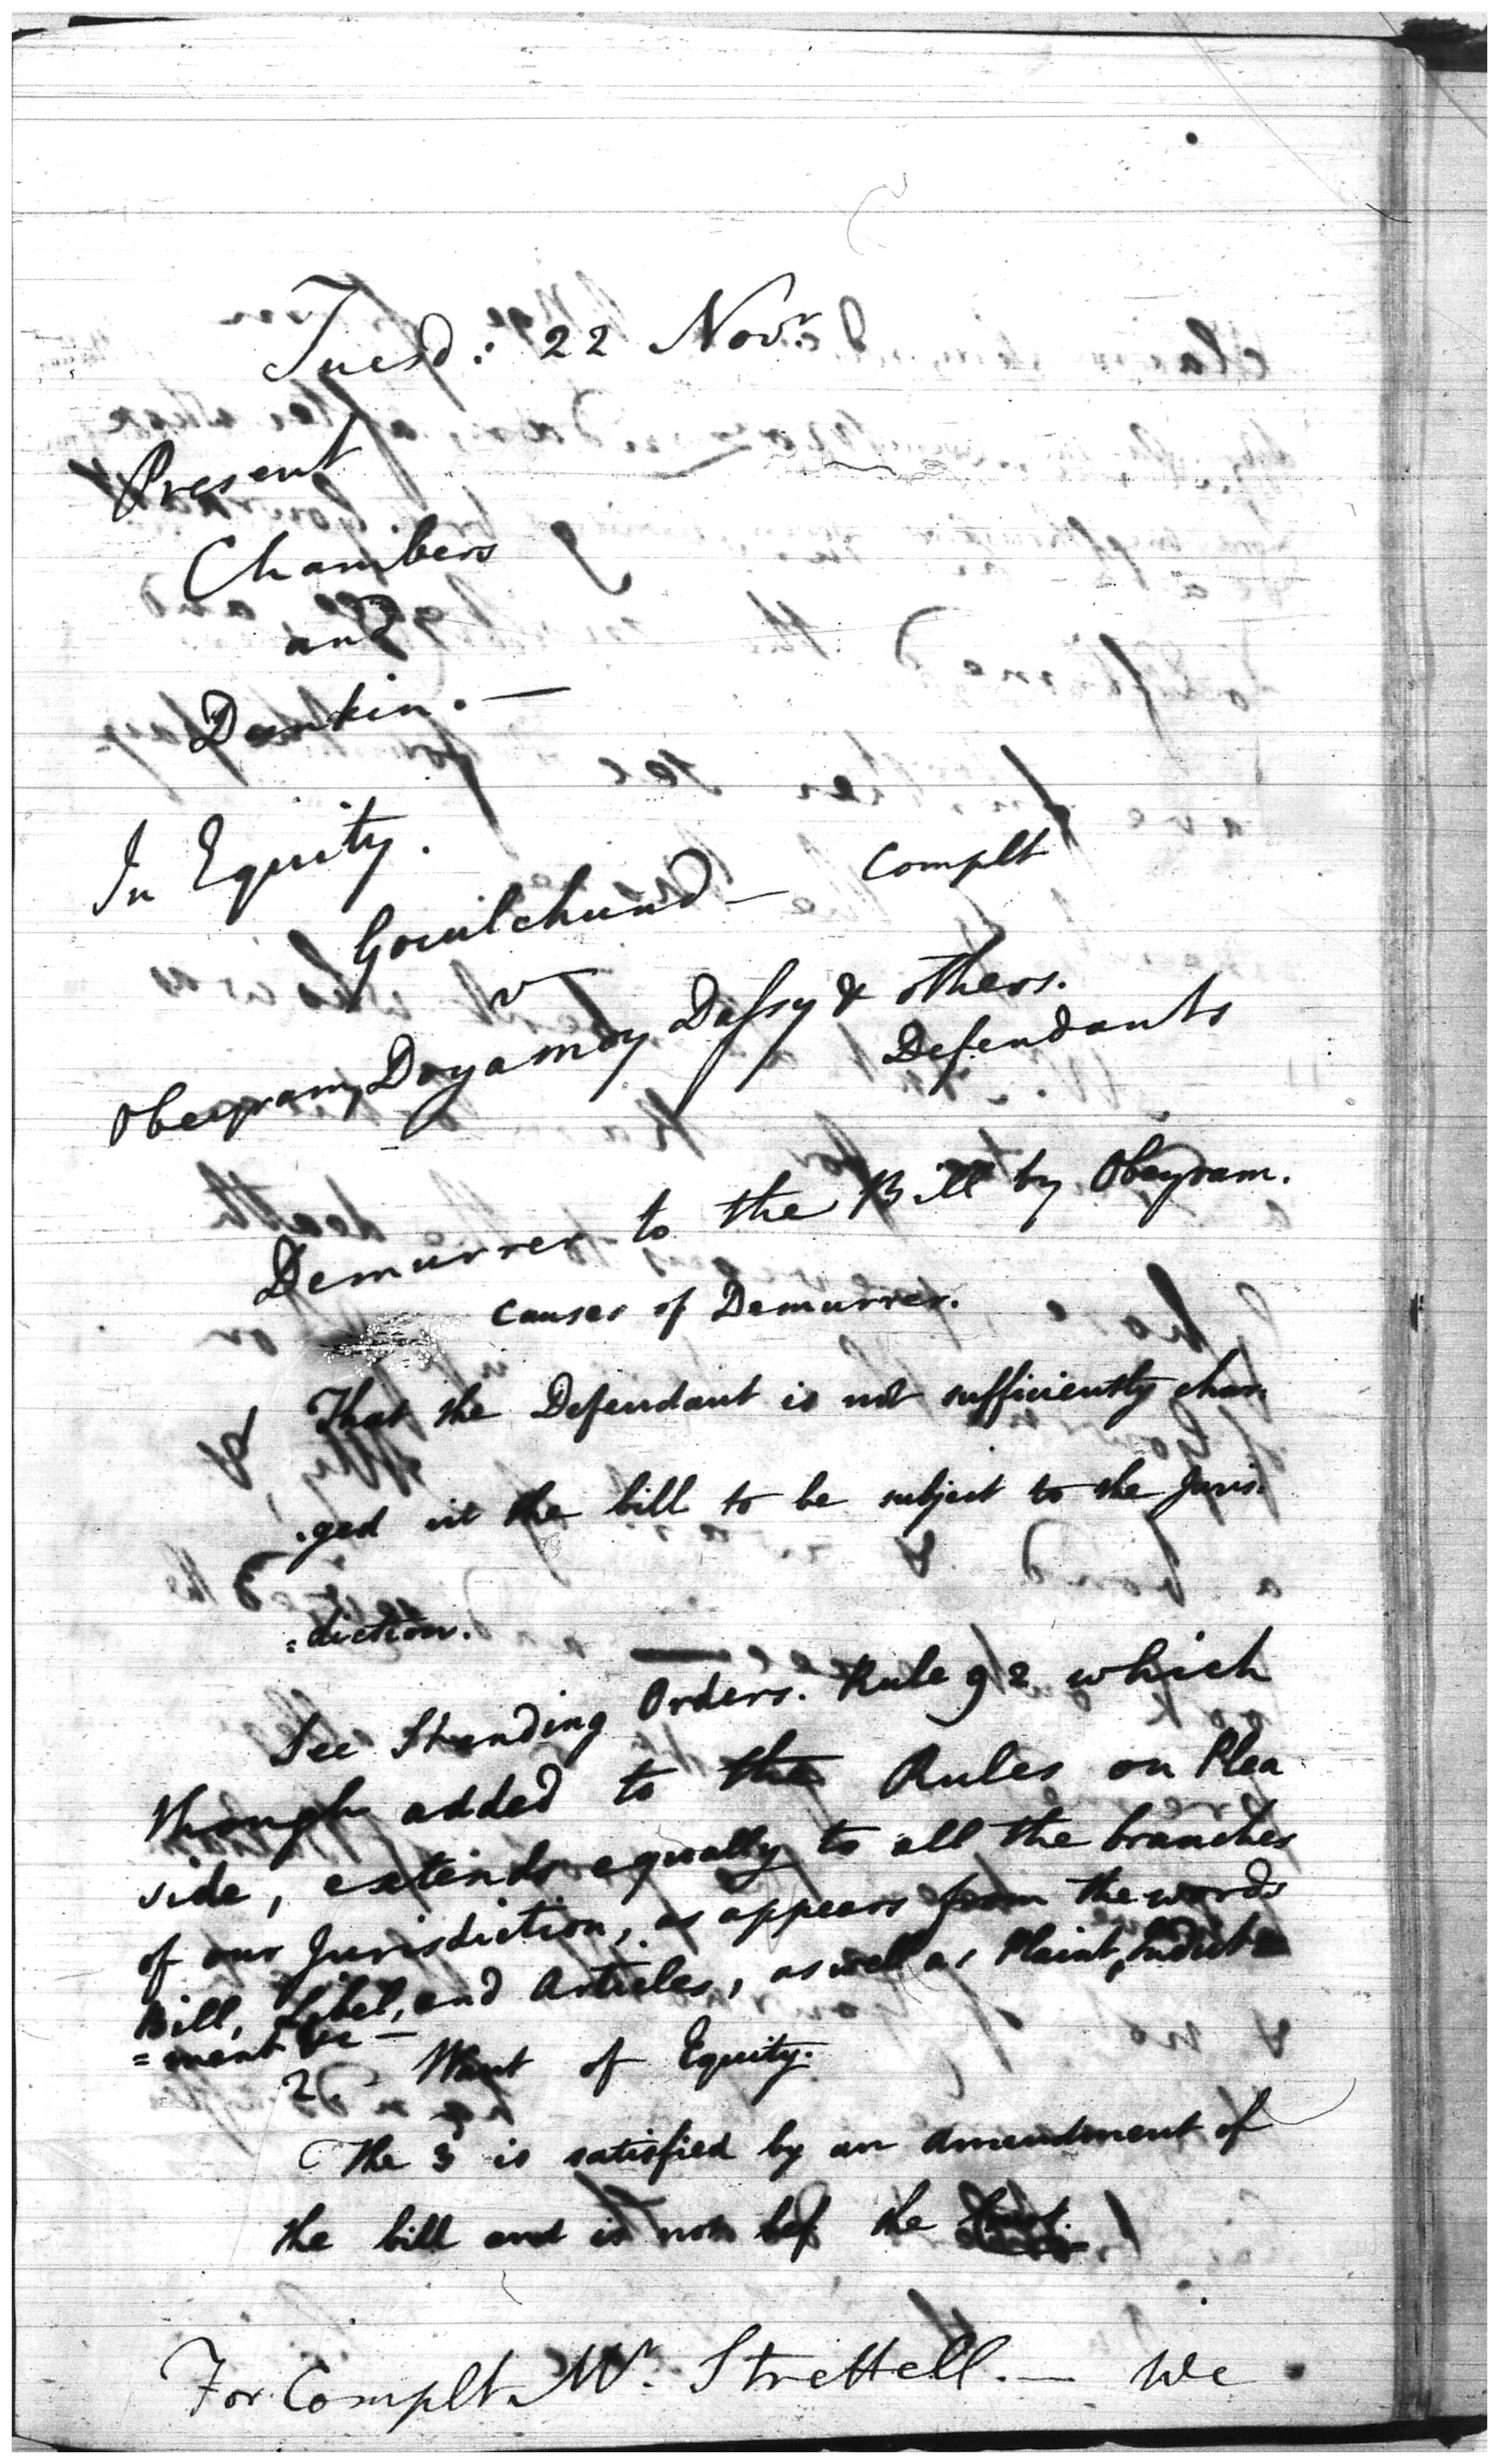 Tuesd: 22 Novr.
Present
Chambers
and
Dunkin. —
In Equity.
Goculchund — Complt
v
Obeyram, Doyamoy Dassy & others.
Defendants
Demurrer to the Bill by Obeyram.
Causes of Demurrer.
That the Defendant is not sufficiently char=
=ged in the bill to be subject to the Juris=
=diction.
See Standing Orders. Rule 92 which
though added to the Rules on Plea
side, extends equally to all the branches
of our Jurisdiction, as appears from the words
Bill, Libel, and Articles, as well as Plaint, Indict=
=ment &c —
2 Want of Equity.
The 3 is satisfied by an amendment of
the bill and is not bef. the
For Complt. Mr. Strettell. — We